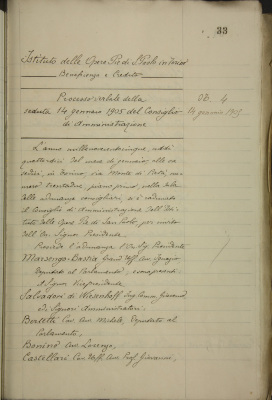 33
Istituto delle Opere Pie di S. Paolo in Torino
Beneficenza e Credito
Processo verbale della
seduta 14 gennaio 1905 del Consiglio
di Amministrazione
N. 4
14 gennaio 1905
L'anno millenovecentocinque, addì
quattordici del mese di gennaio, alle ore
in Torino, via Monte di Pietà, nu-
mero trentadue, piano primo, nella sala
delle adunanze consigliari, si è radunato
il Consiglio di Amministrazione dell'Isti-
tuto delle Opere Pie di San Paolo, per invito
dell' Signor Presidente.
Presiede l'adunanza l'Ill. Sig. Presidente
Marsengo-Bastia Grand'Uff. Avv. Ignazio
Deputato al Parlamento,
i Signori Vicepresidente
Salvadori di Wiesenhoff
Signori Amministratori:
Bertetti Cav. Avv. Michele, Deputato al
Parlamento,
Bonino Avv. Lorenzo,
Castellari Cav. Uff. Avv. Prof. Giovanni,